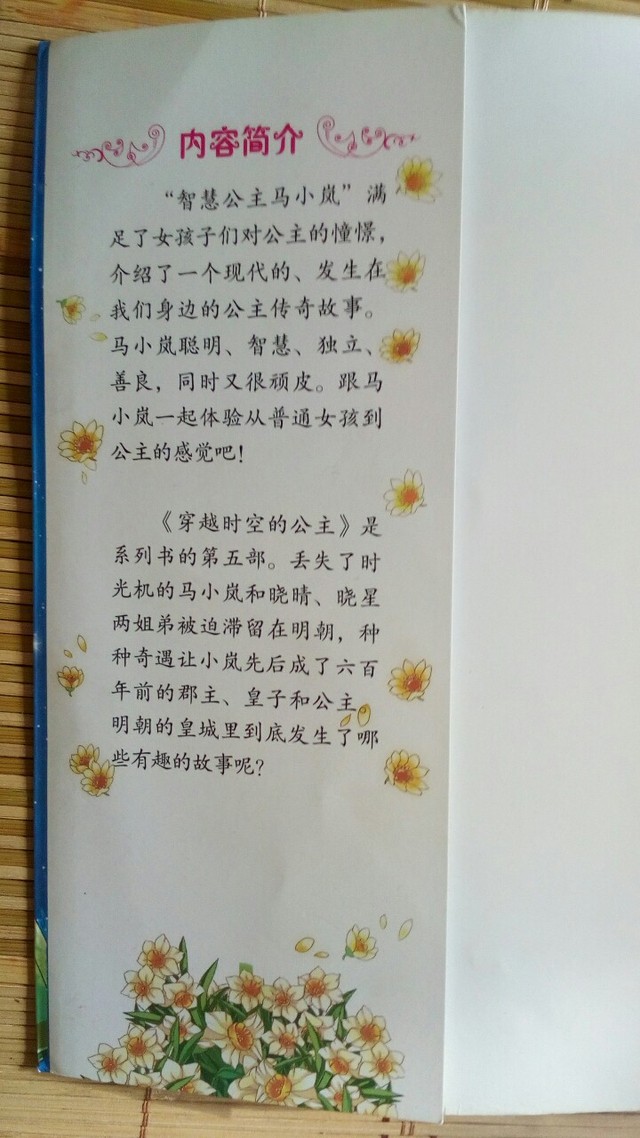 内容简介
“智慧公主马小岚”满
足了女孩子们对公主的憧憬，
介绍了一个现代的、发生在
我们身边的公主传奇故事。
马小岚聪明、智慧、独立、
善良，同时又很顽皮。跟马
小岚一起体验从普通女孩到
公主的感觉吧！
《穿越时空的公主》是
系列书的第五部。丢失了时
光机的马小岚和晓晴、晓星
两姐弟被迫滞留在明朝，种
种奇遇让小岚先后成了六百
年前的郡主、皇子和公主。
明朝的皇城里到底发生了哪
些有趣的故事呢？